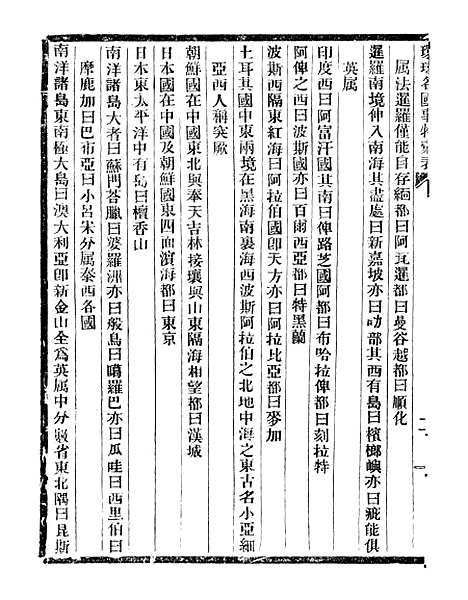 環球各國事物彙表
屬法暹羅僅能自存緬都曰阿瓦暹都曰曼谷越都曰順化
暹羅南境伸入南海其盡處曰新嘉坡亦曰叻部其西有島曰檳榔嶼亦曰疵能俱
英屬
印度西曰阿富汗國其南曰俾路芝國阿都曰布哈拉俾都曰刻拉特
阿俾之西曰波斯國亦曰百爾西亞都曰特黑蘭
波斯西隔東紅海曰阿拉伯國卽天方亦曰阿拉比亞都曰麥加
土耳其國中東兩境在黑海南裏海西波斯阿拉伯之北地中海之東古名小亞細
亞西人稱突厥
朝鮮國在中國東北與奉天吉林接壤與山東隔海相望都曰漢城
日本國在中國及朝鮮國東四面濱海都曰東京
日本東太平洋中有島曰檀香山
南洋諸島大者曰蘇門答臘曰婆羅洲亦曰般島曰噶羅巴亦曰瓜哇曰西里伯曰
摩鹿加曰巴布亞曰小呂宋分屬泰西各國
南洋諸島東南極大島曰澳大利亞卽新金山全為英屬中分數省東北隅曰昆斯
二